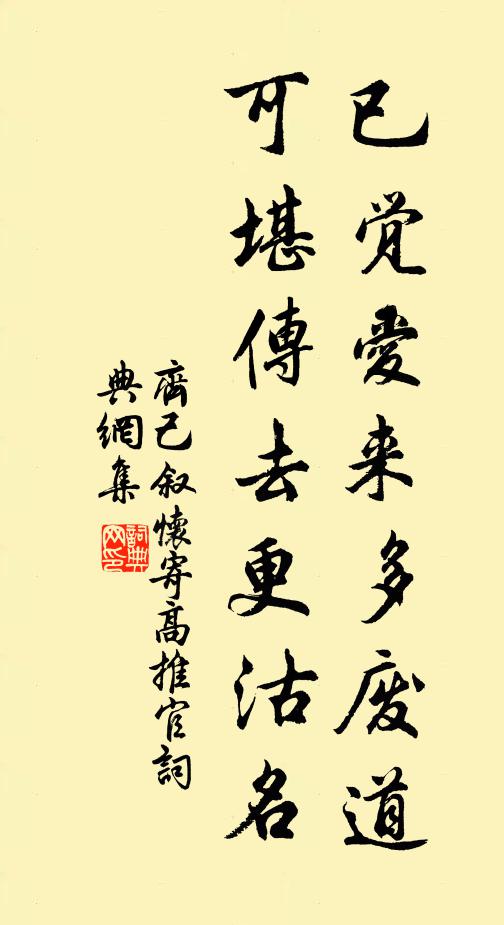 已觉愛来多废道
可堪傳去更沽名
齊己叙懷寄高推官詞
典網集
詞典网印